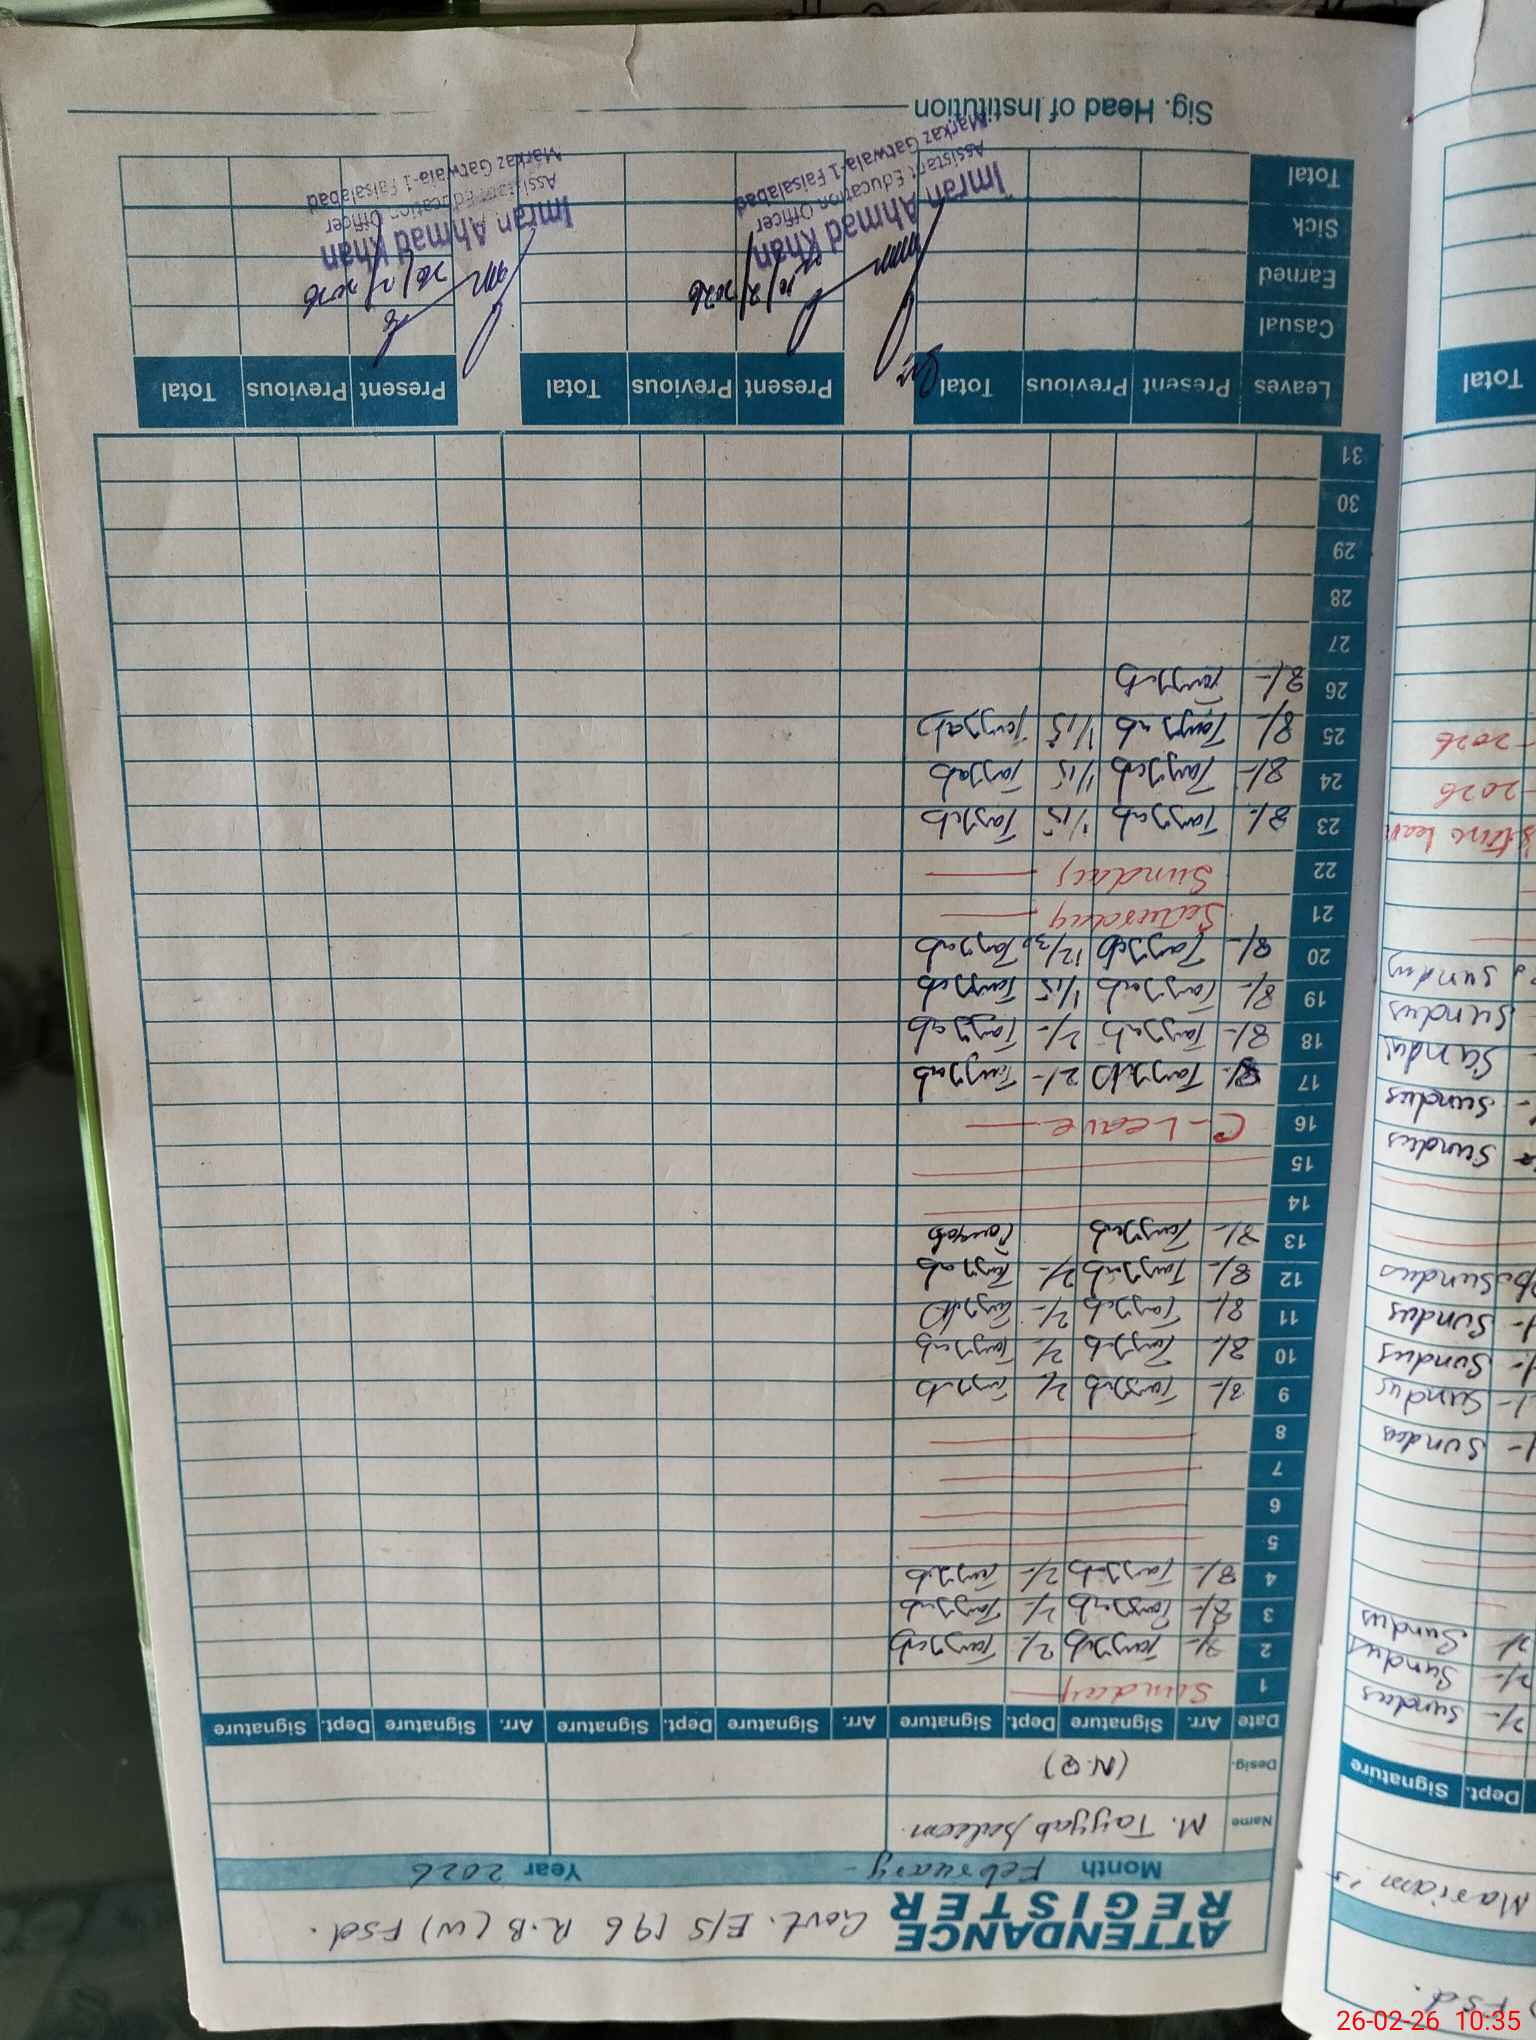 ATTENDANCE REGISTER Govt. E/S 196 R.B (W) Fsd.
Month February - Year 2026
Name M. Tayyab Saleem
Desig. (N.Q)
Date Arr. Signature Dept. Signature Arr. Signature Dept. Signature Arr. Signature Dept. Signature
1 Sunday
2 8/- Tayyab 2/ Tayyab
3 8/- Tayyab 2/- Tayyab
4 8/- Tayyab 2/- Tayyab
5
6
7
8
9 8/- Tayyab 2/ Tayyab
10 8/- Tayyab 2/ Tayyab
11 8/- Tayyab 2/- Tayyab
12 8/- Tayyab 2/- Tayyab
13 8/- Tayyab Tayyab
14
15
16 C-Leave
17 8/- Tayyab 2/- Tayyab
18 8/- Tayyab 2/- Tayyab
19 8/- Tayyab 1/15 Tayyab
20 8/- Tayyab 12/30 Tayyab
21 Saturday
22 Sunday
23 8/- Tayyab 1/15 Tayyab
24 8/- Tayyab 1/15 Tayyab
25 8/- Tayyab 1/15 Tayyab
26 8/- Tayyab
27
28
29
30
31
Leaves Present Previous Total Present Previous Total Present Previous Total
Casual
Earned
Sick
Total
10/2/2026
Imran Ahmad Khan
Assistant Education Officer
Markaz Gatwala-1 Faisalabad
26/2/2026
Imran Ahmad Khan
Assistant Education Officer
Markaz Gatwala-1 Faisalabad
Sig. Head of Institution
Fsd.
Mariam
Dept. Signature
2/- Sundus
2/- Sundus
2/ Sundus
Sundus
Sundus
Sundus
Sundus
Sundus
Sundus
Sundus
Sundus
Sundus
Sundus
2026
2026
Total
26-02-26 10:35